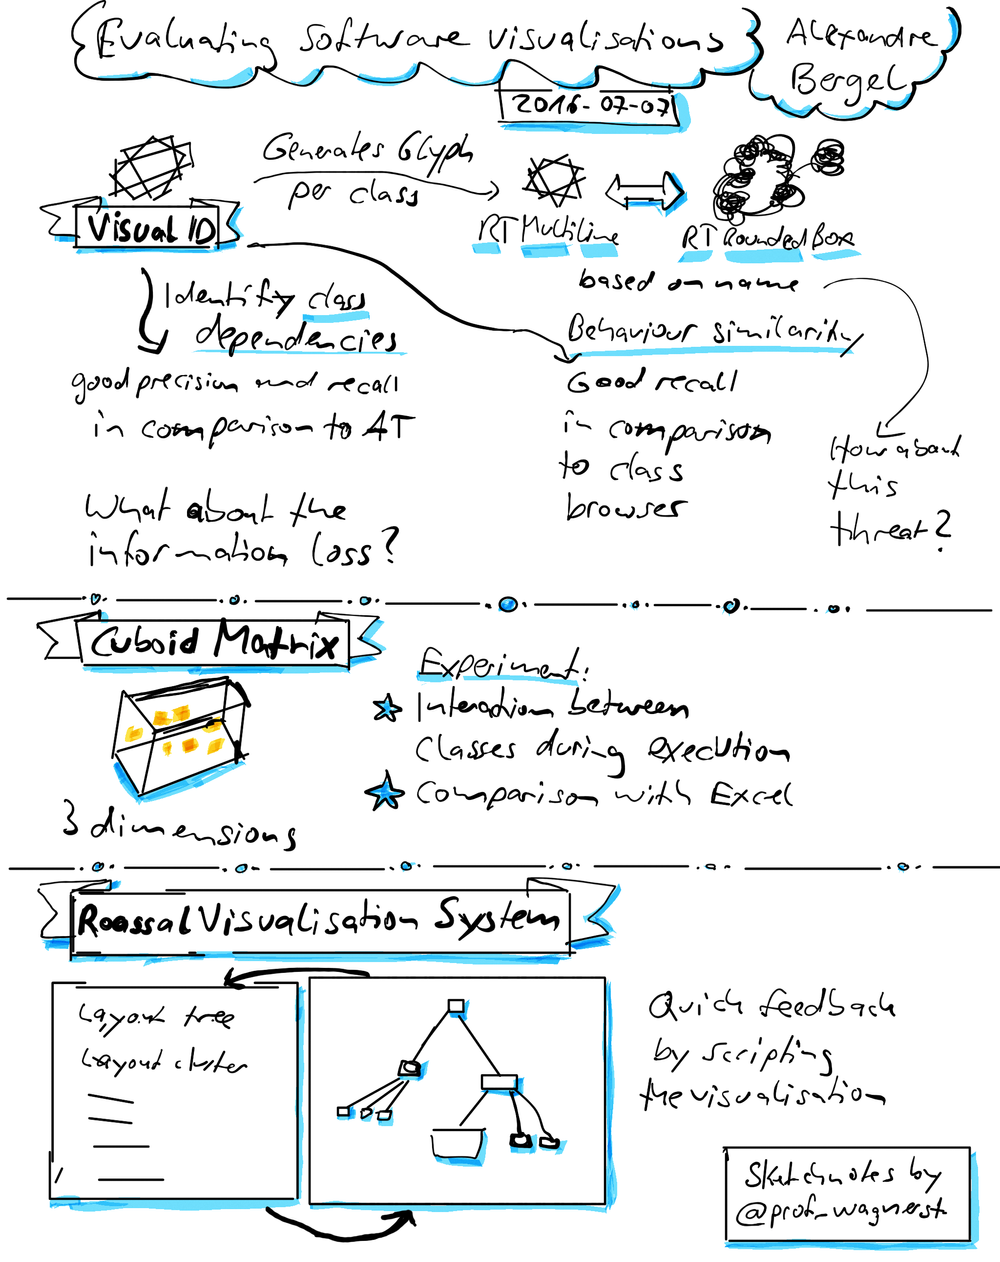 Evaluating software visualisations
Alexandre
Bergel
2016-07-07
Generates Glyph
per class
Visual ID
RT Multiline
RT Rounded Box
based on name
Identify class
dependencies
Behaviour similarity
good precision and recall
in comparison to AT
Good recall
in comparison
to class
browser
How about
this
threat?
What about the
information loss?
Cuboid Matrix
Experiment:
Interaction between
Classes during execution
Comparison with Excel
3 dimensions
Roassal Visualisation System
Layout tree
Layout cluster
Quick feedback
by scripting
the visualisation
Sketchnotes by
@prof_wagnerst